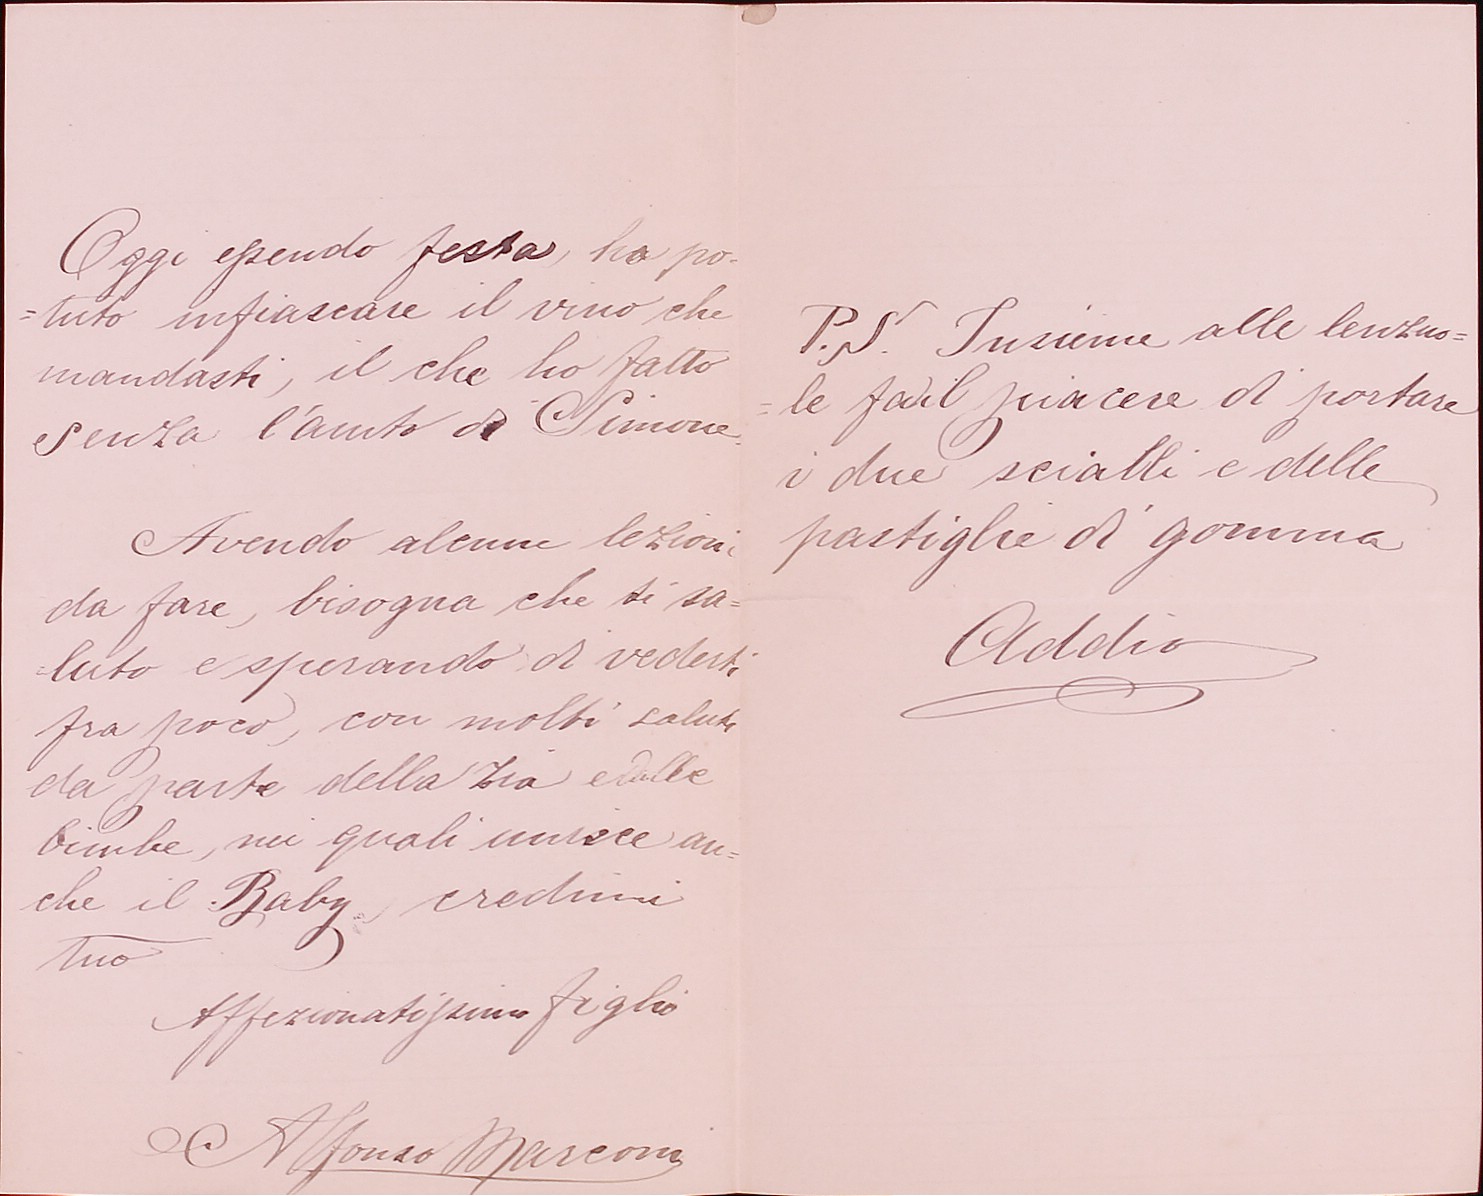 Oggi essendo festa, ho po-
=tuto infiascare il vino che
mandasti, il che ho fatto
senza l'aiuto di Simone.
Avendo alcune lezioni
da fare, bisogna che ti sa=
=luto e sperando di vederti
fra poco, con molti saluti
da parte della zia e delle
bimbe, nei quali unisce an=
che il Baby, credimi
tuo
Affezionatissimo figlio
Alfonso Marconi
P.S. Insieme alle lenzuo=
=le fai il piacere di portare
i due scialli e delle
pastiglie di gomma
Addio